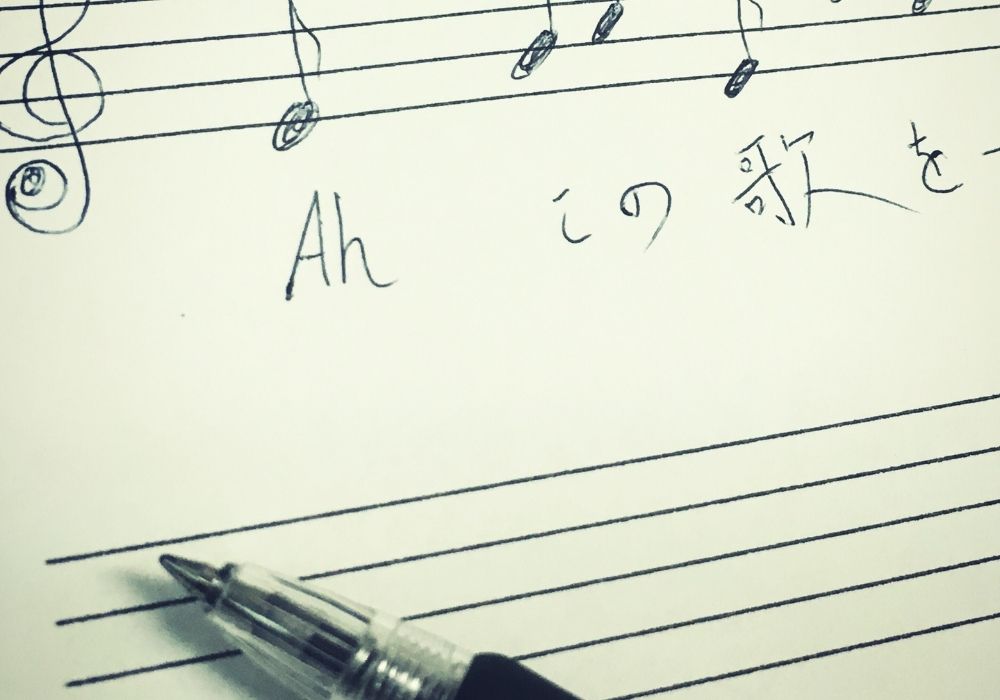 Ah この歌を